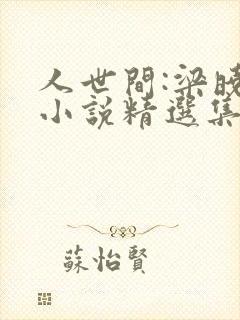 人世間:梁曉
小說精選集
蘇怡賢